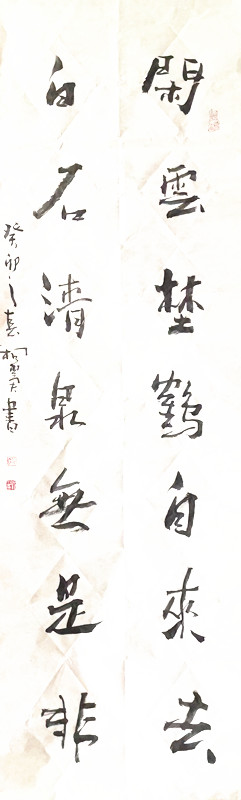 閑雲埜鶴自來去
白石清泉無是非
癸卯之春
書